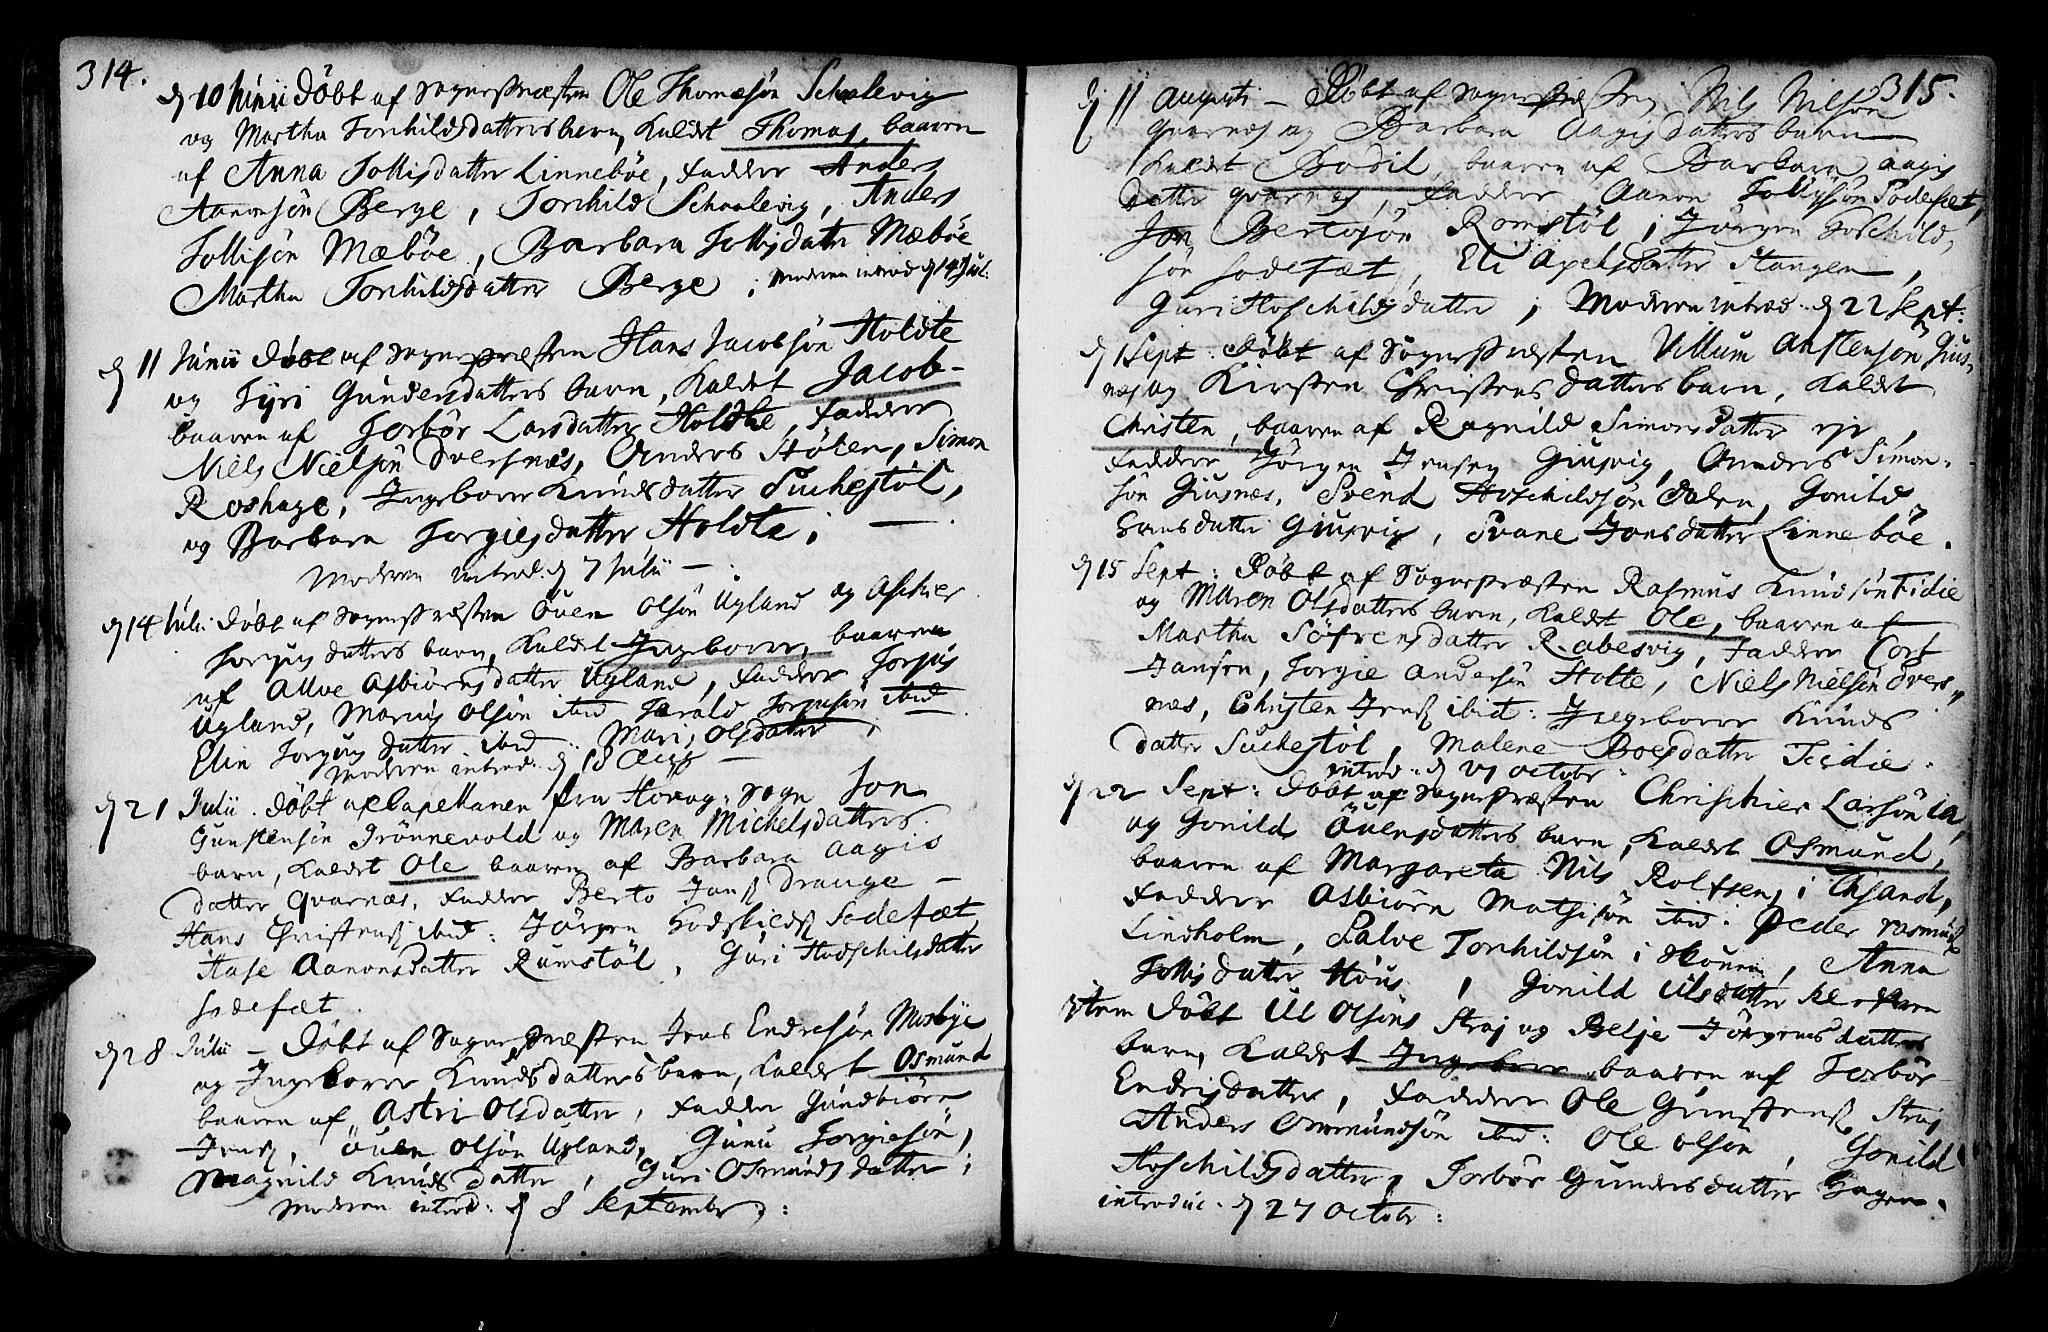 314.
d 10 Junii Döbt af Sognepræsten Ole Thomesön Schalevig
og Martha Torchilds datters barn, kaldet Thomas, baaren
af Anna Jollisdatter Linneböe, Fadder Anders
Aanonsön Berge, Torchild Schaalevig, Anders
Jollisön Mæböe, Barbara Jollisdatter Mæböe
Martha Torchildsdatter Berge; Moderen introd. d 14 Jul:
d 11 Junii Döbt af Sognepræsten Hans Jacobsön Holdte
og Tyri Gundersdatters barn, kaldet Jacob
baaren af Torbör Larsdatter Holdte, Fadder
Niels Nielsön Dversnæs, Anders Stölen, Simon
Roshage, Ingeborre Knudsdatter Suchestöl,
og Barbara Torgiesdatter Holdte;
Moderen introd. d 7 Julii
d 14 Juli. Döbt af Sognepræsten Öuen Olsön Ugland og Aschier
Jorgus datters barn, kaldet Ingeborre, baaren
af Allve Asbiörnsdatter Ugland, Fadder Jorgus
Ugland, Marcus Olsön ibid Harald Jorgusön ibid
Elin Jorgus datter ibid: Mari, Olsdatter,
Moderen introd: d 18 Aug
d 21 Julii. Döbt af Capellanen fra Hövog: Sogn Jon
Gunstensön Trönnevold og Maren Michelsdatters
barn, kaldet Ole baaren af Barbara Aagis
datter Qvarnæs, Fadder Berto Jans Drange
Hans Christens ibid: Jörgen Hodskilds Sodefæt,
Aase Aanonsdatter Rumstöl, Guri Hodschilsdatter
Sodefæt.
d 28 Julii Döbt af Sognepræsten Jens Endresön Mosbye
og Ingeborre Knudsdatters barn, kaldet Osmund
baaren af Astri Olsdatter, Fadder Gundbiörn
Jens, Öuen Olsön Ugland, Gunu Torgiesön,
Magnild Knuds datter, Guri Osmunds datter;
Moderen introd: d 8 September:
315.
d 11 Augusti Döbt af Sognepræsten Nils Nilsön
Qvarnæs og Barbara Aagisdatters barn
kaldet Bodil, baaren af Barbara Aagis
datter Qvarnæs, Fadder Aanon Jollisön Sodefæt,
Jon Bertosön Romstöl, Jörgen Hoschild,
sön Sodefæt, Eli Axelsdatter Stangen,
Guri Hoschildsdatter, Moderen introd. d 22 Sept:
d 1 Sept: Döbt af Sognepræsten Villum Anstensön Gius,
næs og Kirsten Christens datters barn, kaldet
Christen, baaren af Ragnild Simonsdatter,
Fadder Jörgen Jensen Giusvig, Anders Simon-
sön Giusnæs, Svend Hoschildsön Dalen, Gonild
Svensdatter Giusvig, Svane Jonsdatter Linneböe.
d 15 Sept: Döbt af Sognepræsten Rasmus Knudsön Fidie
og Maren Olsdatters barn, kaldet Ole, baaren af
Martha Söfrensdatter Rabesvig, Fadder Cort
Jansen, Torgie Andersön Holte, Niels Nielsön Dvers-
næs, Christen Jens ibid: Ingeborre Knuds
datter Suchestöl, Malene Boesdatter Fidie.
introd. d 27 octobr:
d 22 Sept: Döbt af Sognepræsten Christier Larsön
og Gonild Öuensdatters barn, kaldet Osmund,
baaren af Margareta Nils Rolfsen i
Fadder Asbiörn Mathisön ibid: Peder Rasmus
Lindholm, Salve Torchildsön i Skouen, Anna
Jollisdatter Höus, Gonild Ulsdatter
item Döbt Ul Olsöns Straj og Belje Jörgens datters
barn, kaldet Ingeborre, baaren af Torbör
Endrisdatter, Fadder Ole Gunstens Straj
Anders Ommundsön ibid: Ole Olsön, Gonild
Hoschildsdatter, Torbör Gundersdatter Hagen.
introduc. d 27 octobr: